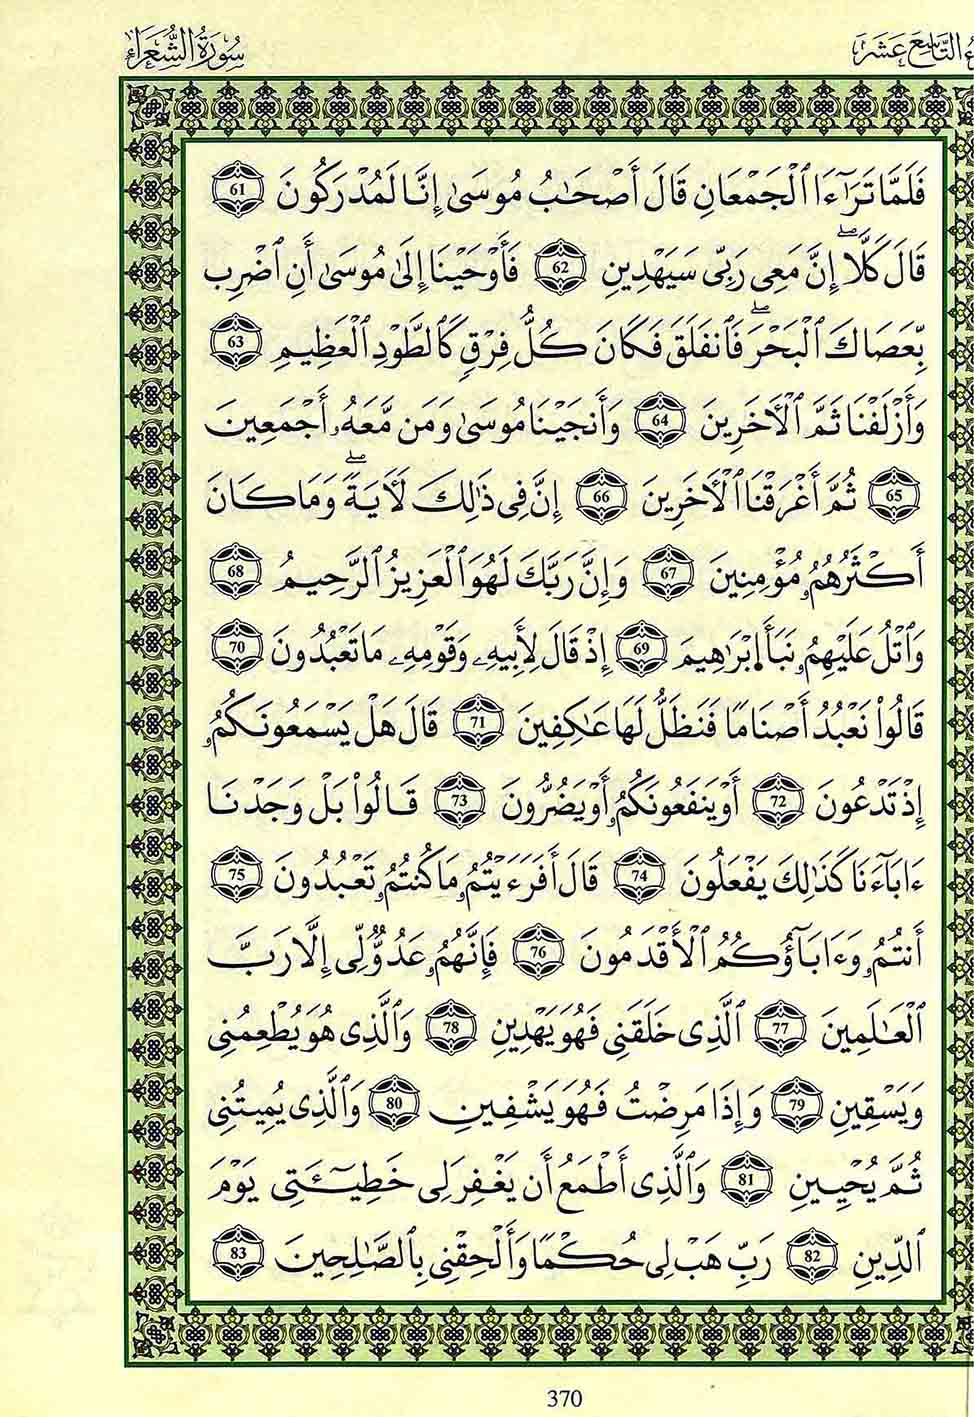 ءُ التَّاسِعَ عَشَرَ
سُورَةُ الشُّعَرَاءِ
فَلَمَّا تَرَٰٓءَا اَ۬لْجَمْعَانِ قَالَ أَصْحَٰبُ مُوسَىٰ إِنَّا لَمُدْرَكُونَ 61
قَالَ كَلَّاۖ إِنَّ مَعِى رَبِّى سَيَهْدِينِ 62 فَأَوْحَيْنَا إِلَىٰ مُوسَىٰ أَنِ اِ۪ضْرِب
بِّعَصَاكَ اَ۬لْبَحْرَۖ فَانفَلَقَ فَكَانَ كُلُّ فِرْقٍ كَالطَّوْدِ اِ۬لْعَظِيمِ 63
وَأَزْلَفْنَا ثَمَّ اَ۬لْأَخَرِينَ 64 وَأَنجَيْنَا مُوسَىٰ وَمَن مَّعَهُۥ أَجْمَعِينَ
65 ثُمَّ أَغْرَقْنَا اَ۬لْأَخَرِينَ 66 إِنَّ فِى ذَٰلِكَ لَأَيَةًۖ وَمَا كَانَ
أَكْثَرُهُمُۥ مُؤْمِنِينَ 67 وَإِنَّ رَبَّكَ لَهُوَ اَ۬لْعَزِيزُ اُ۬لرَّحِيمُ 68
وَاتْلُ عَلَيْهِمُۥ نَبَأَ اِبْرَٰهِيمَ 69 إِذْ قَالَ لِأَبِيهِ وَقَوْمِهِۦ مَا تَعْبُدُونَ 70
قَالُواْ نَعْبُدُ أَصْنَامًا فَنَظَلُّ لَهَا عَٰكِفِينَ 71 قَالَ هَلْ يَسْمَعُونَكُمُۥ
إِذْ تَدْعُونَ 72 أَوْ يَنفَعُونَكُمُۥ أَوْ يَضُرُّونَ 73 قَالُواْ بَلْ وَجَدْنَا
ءَابَآءَنَا كَذَٰلِكَ يَفْعَلُونَ 74 قَالَ أَفَرَءَيْتُمُۥ مَا كُنتُمُۥ تَعْبُدُونَ 75
أَنتُمُۥ وَءَابَآؤُكُمُ اُ۬لْأَقْدَمُونَ 76 فَإِنَّهُمُۥ عَدُوٌّ لِّى إِلَّا رَبَّ
اَ۬لْعَٰلَمِينَ 77 اَ۬لَّذِى خَلَقَنِى فَهُوَ يَهْدِينِ 78 وَالَّذِى هُوَ يُطْعِمُنِى
وَيَسْقِينِ 79 وَإِذَا مَرِضْتُ فَهُوَ يَشْفِينِ 80 وَالَّذِى يُمِيتُنِى
ثُمَّ يُحْيِينِ 81 وَالَّذِى أَطْمَعُ أَن يَغْفِرَ لِى خَطِيٓـَٔتِى يَوْمَ
اَ۬لدِّينِ 82 رَبِّ هَبْ لِى حُكْمًا وَأَلْحِقْنِى بِالصَّٰلِحِينَ 83
370